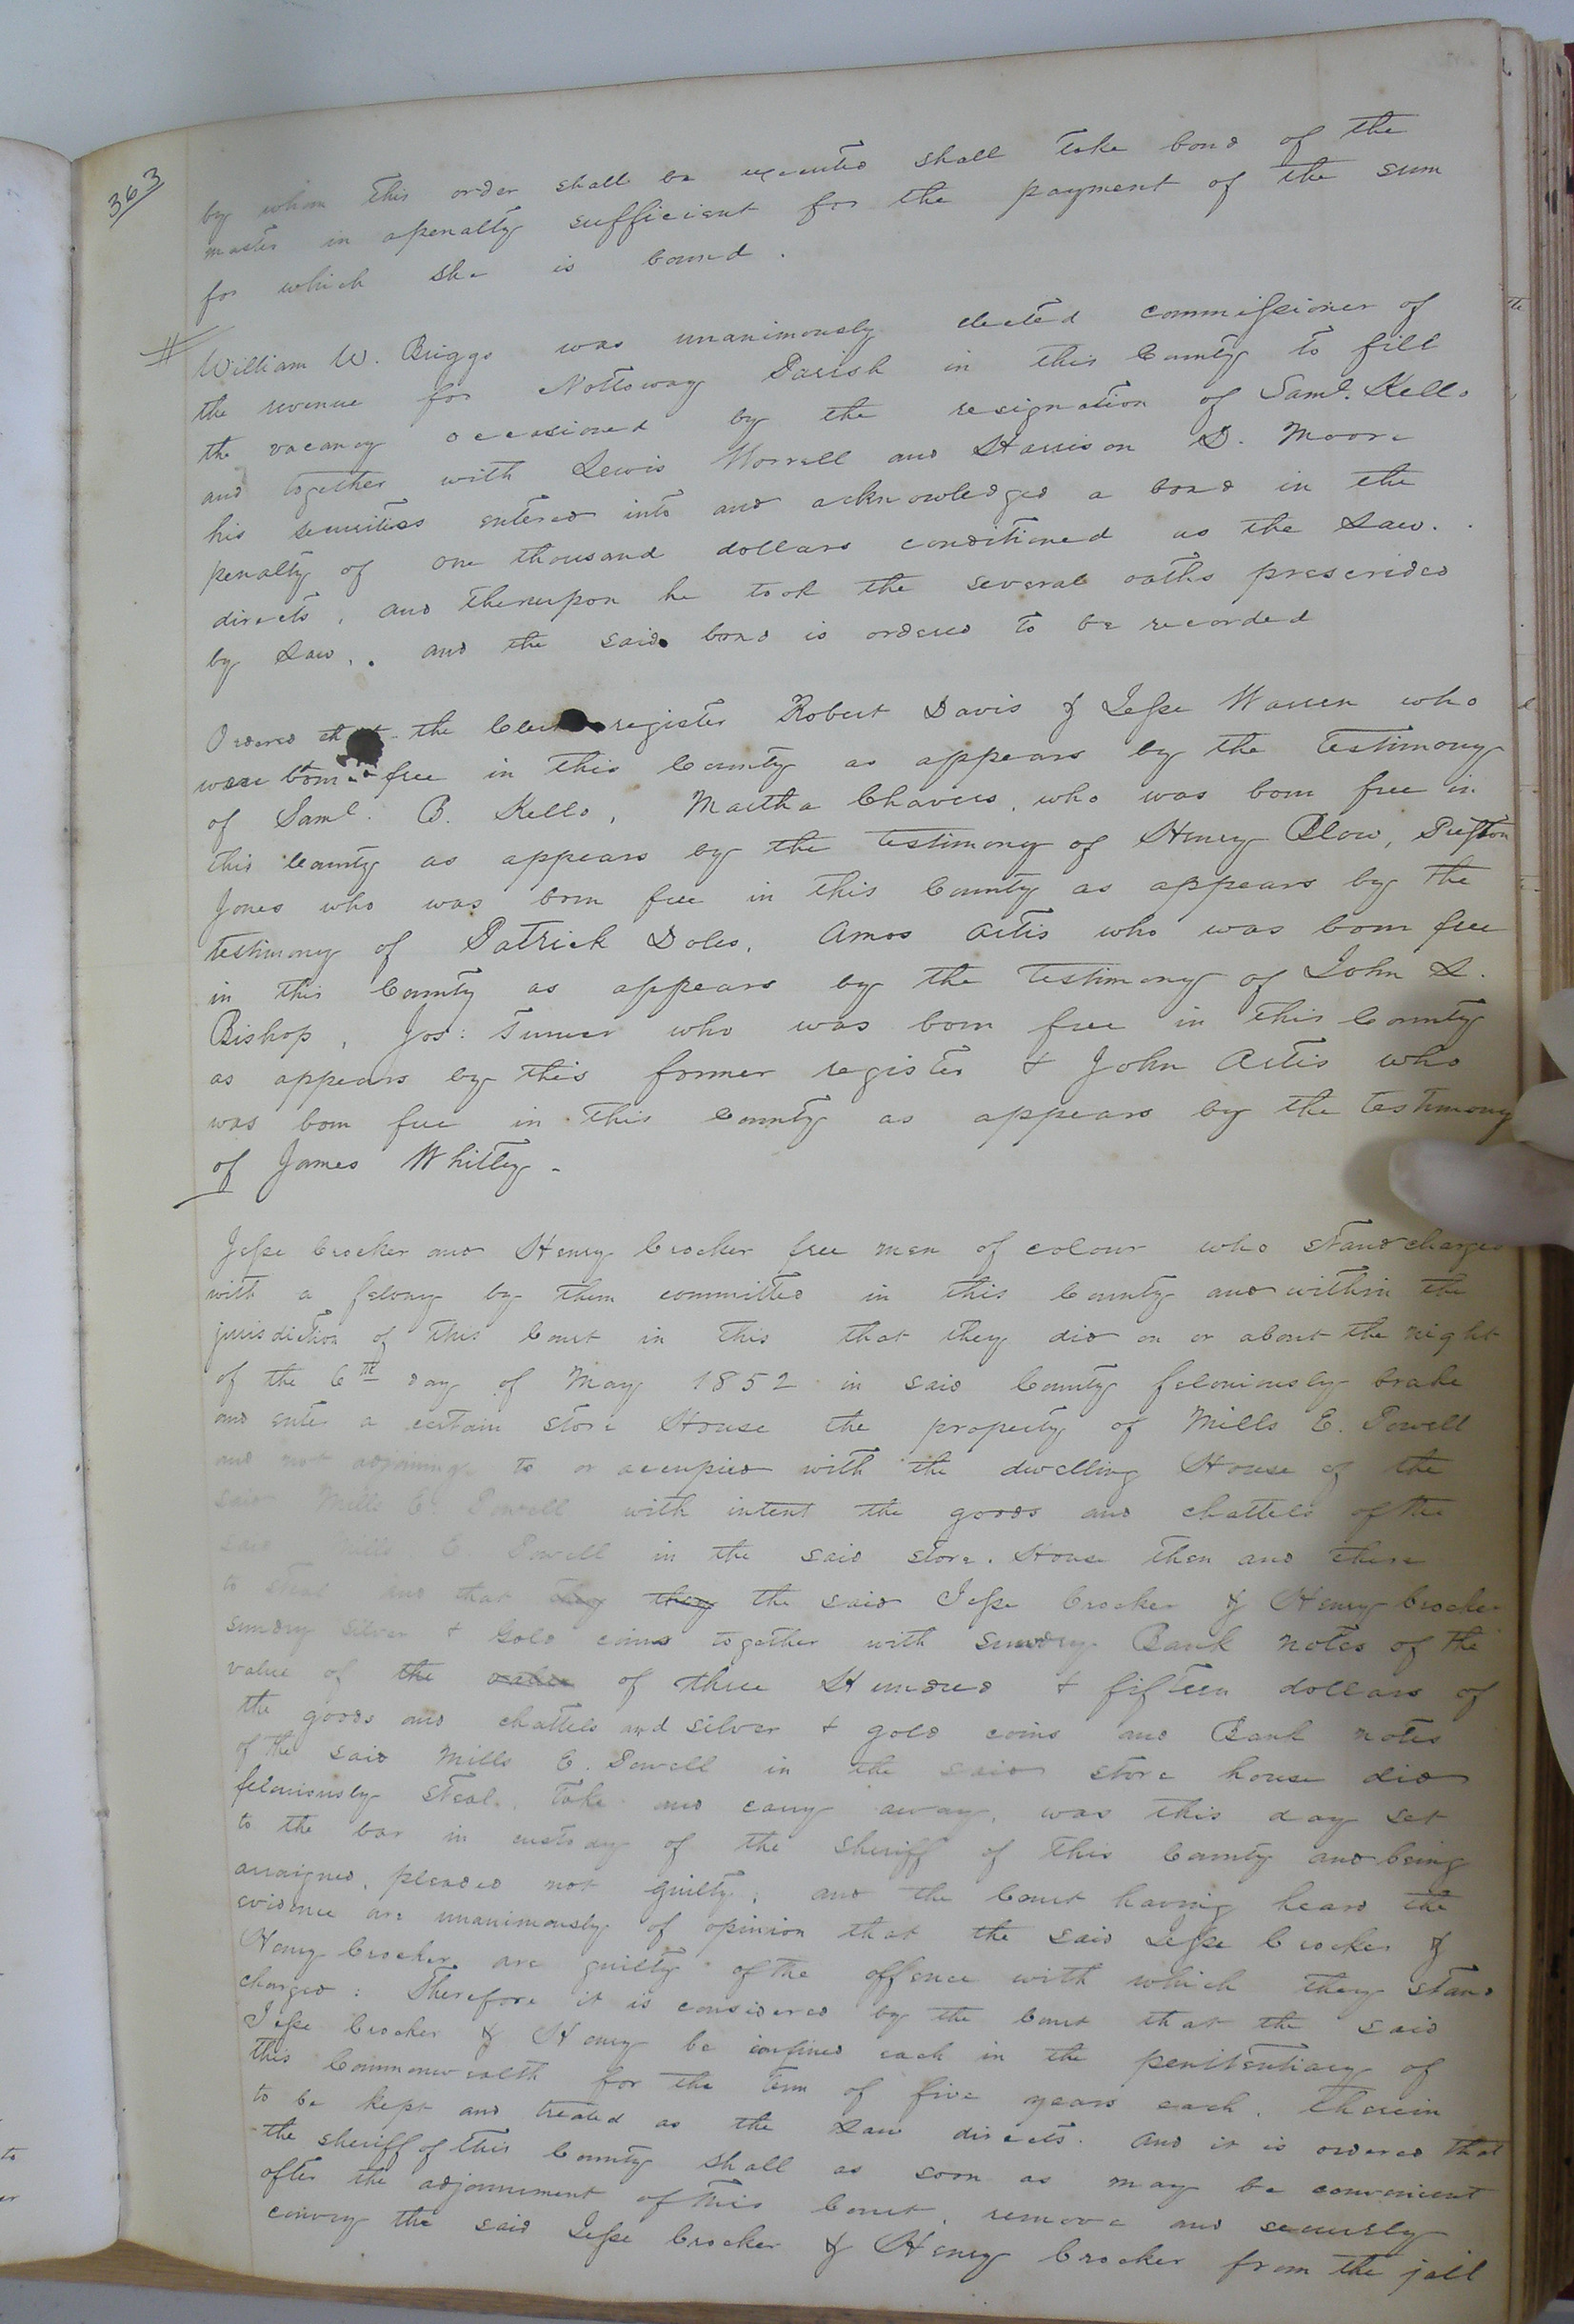 363
by whom this order shall be executed shall take bond of the
master in a penalty sufficient for the payment of the sum
for which she is bound.
William W. Briggs was unanimously elected commissioner of
the revenue for Nottoway Parish in this County to fill
the vacancy occasioned by the resignation of Saml. Kello
and together with Lewis Worrell and Harrison D. Moore
his securities entered into and acknowledged a bond in the
penalty of one thousand dollars conditioned as the Law
directs, and thereupon he took the several oaths prescribed
by Law, and the said bond is ordered to be recorded
Ordered that the Clerk register Robert Davis & Jesse Warren who
were born free in this County as appears by the testimony
of Saml. B. Kello, Martha Chavers, who was born free in
this County as appears by the testimony of Henry Blow, Preston
Jones who was born free in this County as appears by the
testimony of Patrick Doles, Amos Artis who was born free
in this County as appears by the testimony of John L.
Bishop, Jos: Turner who was born free in this County
as appears by this former register & John Artis who
was born free in this County as appears by the testimony
of James Whitley -
Jesse Crocker and Henry Crocker free men of colour who stand charged
with a felony by them committed in this County and within the
jurisdiction of this Court in this that they did on or about the night
of the 6th day of May 1852 in said County feloniously brake
and enter a certain store House the property of Mills E. Powell
and not adjoining to or occupied with the dwelling House of the
said Mills E. Powell with intent the goods and chattels of the
said Mills E Powell in the said store House then and there
to steal and that they they the said Jesse Crocker & Henry Crocker
sundry silver & Gold coins together with sundry Bank notes of the
value of the value of three Hundred & fifteen dollars of
the goods and chattels and silver & gold coins and Bank notes
of the said Mills E. Powell in the said store house did
feloniously steal, take and carry away, was this day set
to the bar in custody of the sheriff of this County and being
arraigned, pleaded not guilty, and the Court having heard the
evidence are unanimously of opinion that the said Jesse Crocker &
Henry Crocker are guilty of the offence with which they stand
charged: Therefore it is considered by the Court that the said
Jesse Crocker & Henry be confined each in the penitentiary of
this Commonwealth for the term of five years each, therein
to be kept and treated as the Law directs. And it is ordered that
the sheriff of this County shall as soon as may be convenient
after the adjournment of this Court, remove and securely
convey the said Jesse Crocker & Henry Crocker from the jail